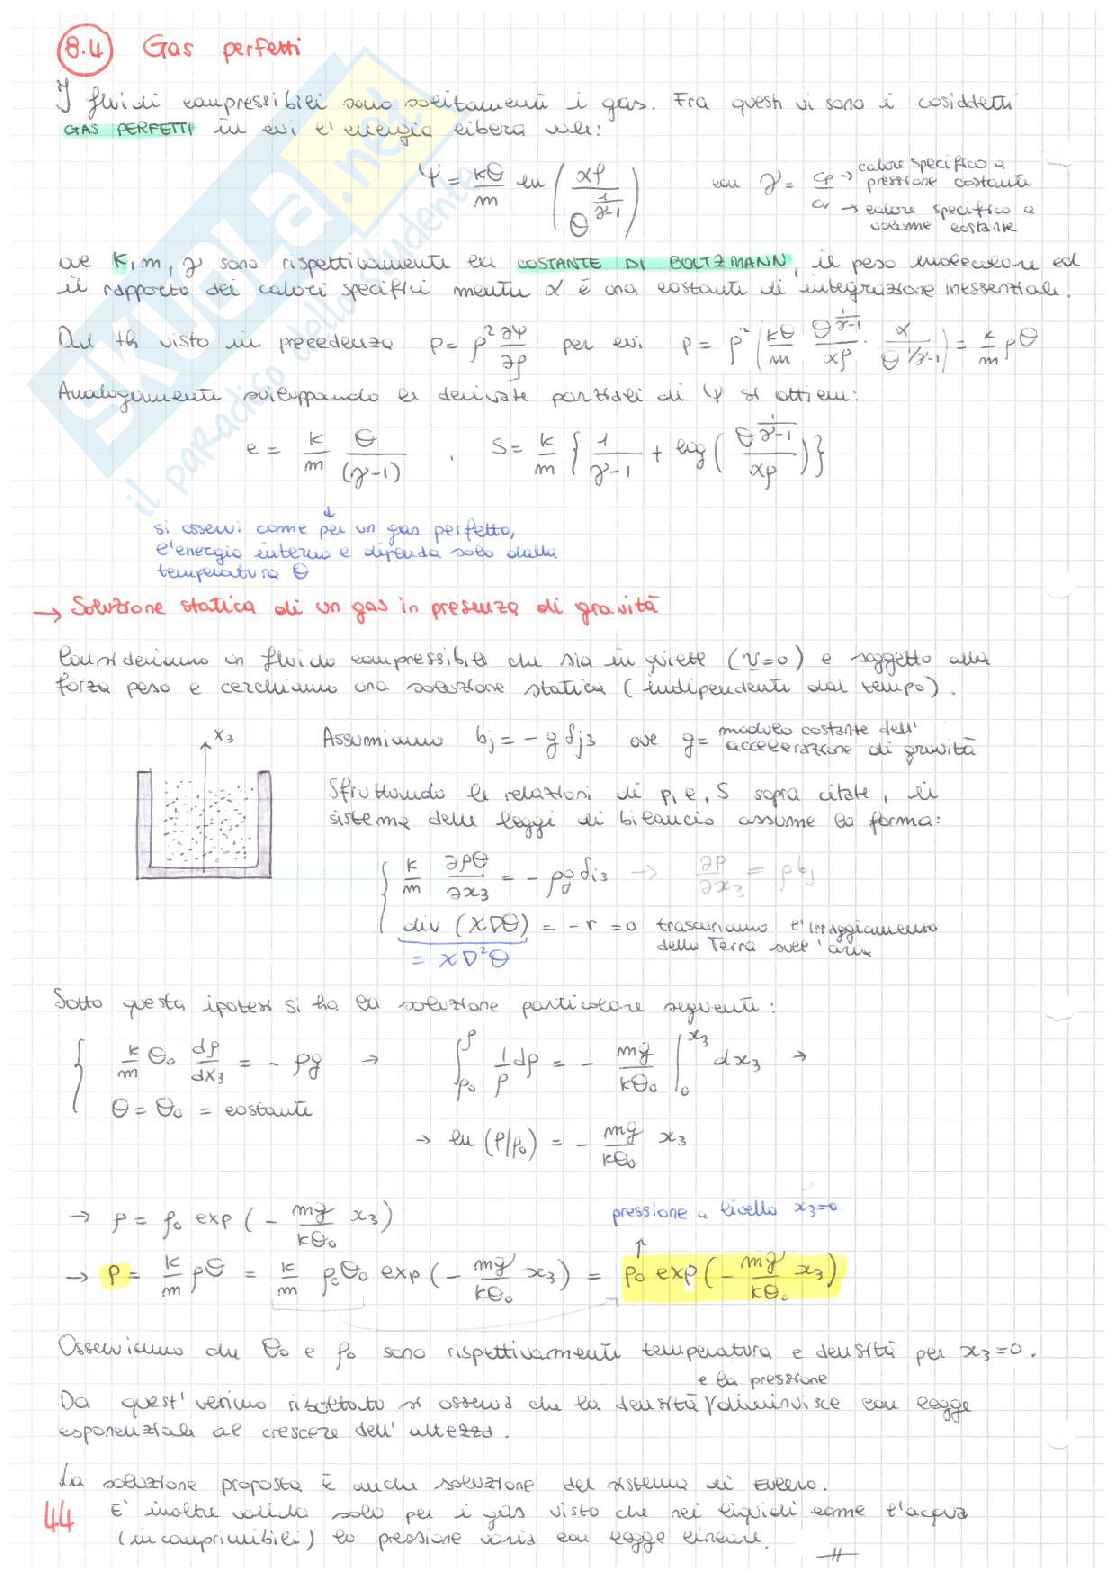 8.4 Gas perfetti
I fluidi compressibili sono solitamente i gas. Fra questi vi sono i cosiddetti
GAS PERFETTI in cui l'energia libera vale:
ψ = kθ/m ln ( αρ / θ^(1/(γ-1)) )   con γ = cp/cv → calore specifico a pressione costante
→ calore specifico a volume costante
ove k, m, γ sono rispettivamente la COSTANTE DI BOLTZMANN, il peso molecolare ed
il rapporto dei calori specifici mentre α è una costante di integrazione inessenziale.
Dal th visto in precedenza p = ρ² ∂ψ/∂ρ per cui p = ρ² ( kθ/m θ^(1/(γ-1))/αρ · α/θ^(1/(γ-1)) ) = k/m ρθ
Analogamente sviluppando le derivate parziali di ψ si ottiene:
e = k/m θ/(γ-1) , S = k/m { 1/(γ-1) + log ( θ^(1/(γ-1)) / αρ ) }
↓
si osservi come per un gas perfetto,
l'energia interna e dipenda solo dalla
temperatura θ
→ Soluzione statica di un gas in presenza di gravità
Consideriamo un fluido compressibile che sia in quiete (v=0) e soggetto alla
forza peso e cerchiamo una soluzione statica (indipendente dal tempo).
x3
Assumiamo bj = - g δj3 ove g = modulo costante dell'
accelerazione di gravità
Sfruttando le relazioni di p, e, S sopra citate, il
sistema delle leggi di bilancio assume la forma:
k/m ∂ρθ/∂x3 = - ρg δi3 → ∂p/∂x3 = ρbj
div (χ∇θ) = -r = 0 trascuriamo l'irraggiamento
della Terra sull'aria
= χ∇²θ
Sotto questa ipotesi si ha la soluzione particolare seguente:
k/m θ0 dρ/dx3 = - ρg → ∫ρ0^ρ 1/ρ dρ = - mg/kθ0 ∫0^x3 dx3 →
θ = θ0 = costante
→ ln (ρ/ρ0) = - mg/kθ0 x3
→ ρ = ρ0 exp ( - mg/kθ0 x3 )
pressione a livello x3=0
↑
→ p = k/m ρθ = k/m ρ0θ0 exp ( - mg/kθ0 x3 ) = p0 exp ( - mg/kθ0 x3 )
Osserviamo che θ0 e ρ0 sono rispettivamente temperatura e densità per x3=0.
e la pressione
Da quest'ultimo risultato si osserva che la densità / diminuisce con legge
esponenziale al crescere dell'altezza.
La soluzione proposta è anche soluzione del sistema di Eulero.
44 E' inoltre valida solo per i gas visto che nei liquidi come l'acqua
(incomprimibili) la pressione varia con legge lineare.
SKUOLA.net
il paradiso dello studente